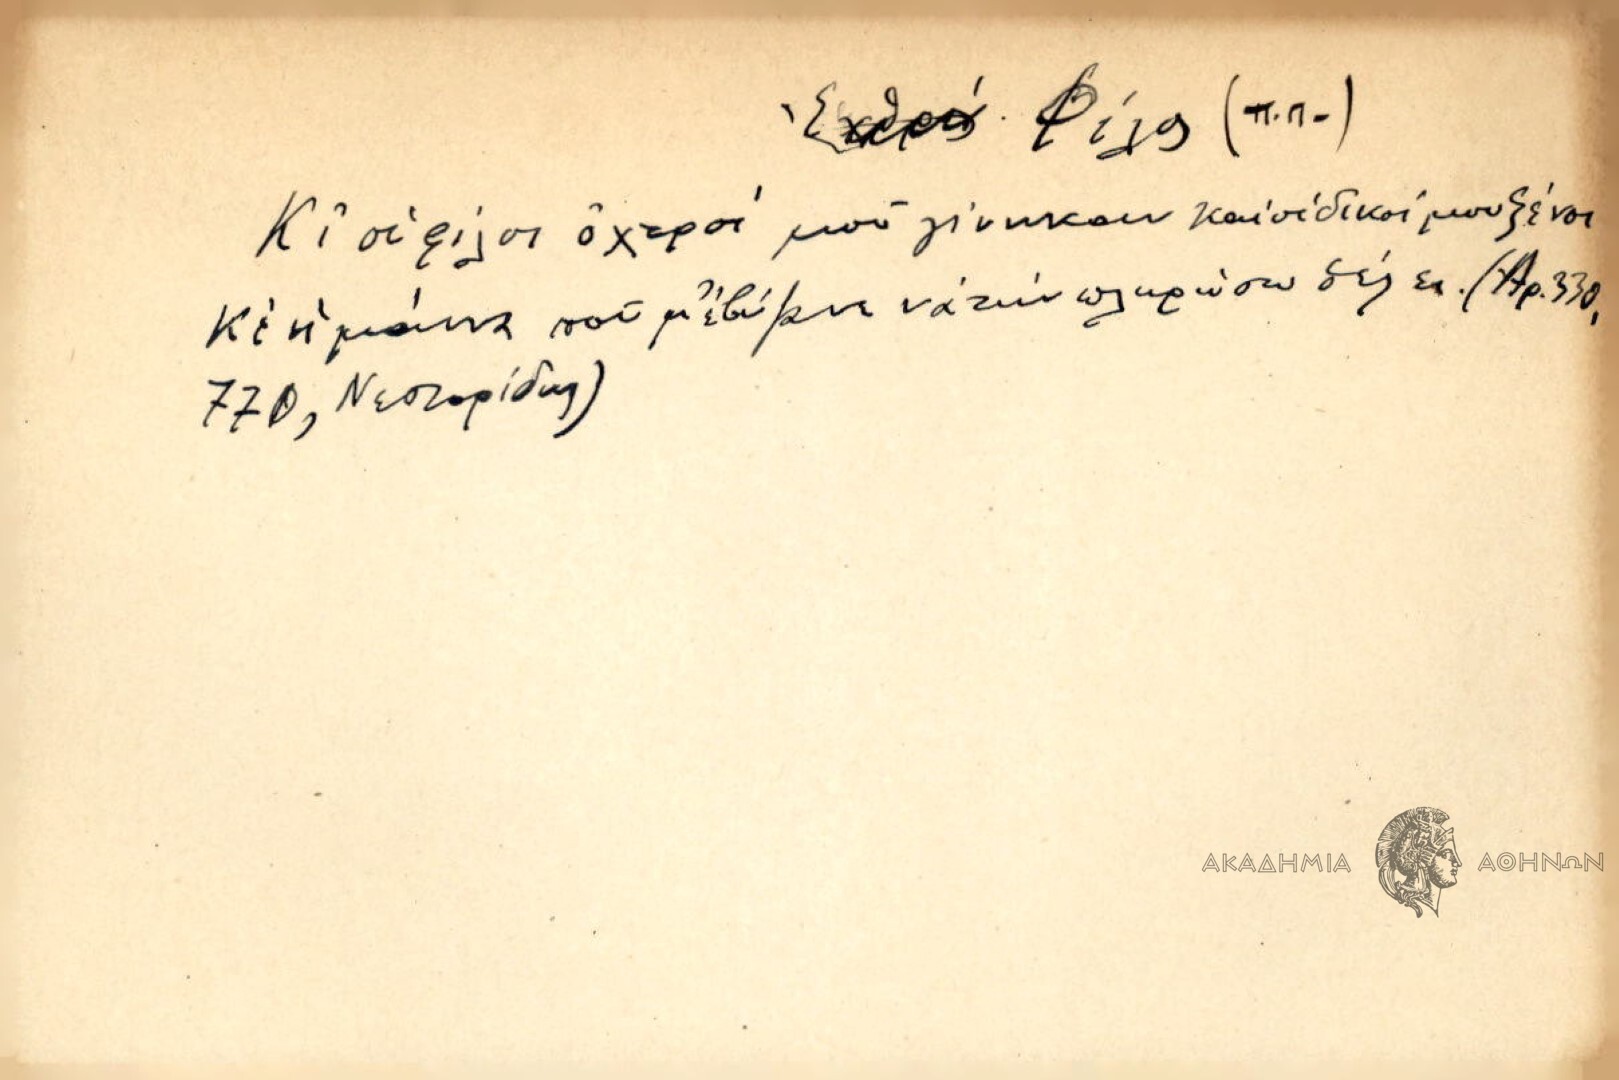 Ἐχθρός. Φίλος (π.π.)
Κι οἱ φίλοι ὀχτροί μοῦ γίνηκαν καί οἱ δικοί μου ξένοι
Κι ἡ μάννα ποῦ μ' ἐβύζανε νά τήν πληρώσω θέλει. (Ἀρ. 330,
770, Νεστορίδης)
ΑΚΑΔΗΜΙΑ ΑΘΗΝΩΝ